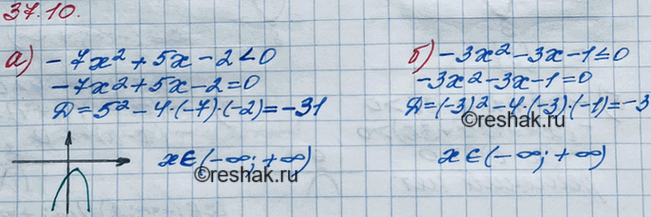 37.10.
а) -7x² + 5x - 2 < 0
-7x² + 5x - 2 = 0
Д = 5² - 4·(-7)·(-2) = -31
x ∈ (-∞; +∞)
б) -3x² - 3x - 1 ≤ 0
-3x² - 3x - 1 = 0
Д = (-3)² - 4·(-3)·(-1) = -3
x ∈ (-∞; +∞)
©reshak.ru
©reshak.ru